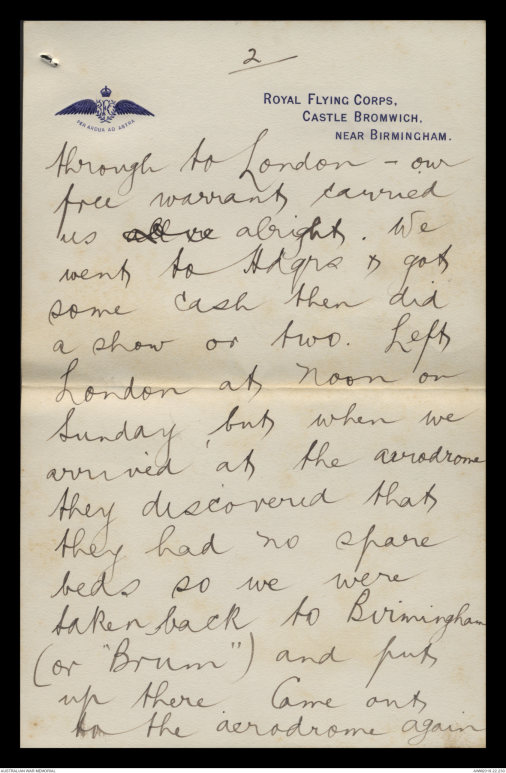 2
PER ARDUA AD ASTRA
ROYAL FLYING CORPS,
CASTLE BROMWICH,
NEAR BIRMINGHAM.
through to London – our
free warrant carried
us alright. We
went to Hdqrs & got
some cash then did
a show or two. Left
London at noon on
Sunday, but when we
arrived at the aerodrome
they discovered that
they had no spare
beds so we were
taken back to Birmingham
(or "Brum") and put
up there. Came out
to the aerodrome again
AUSTRALIAN WAR MEMORIAL